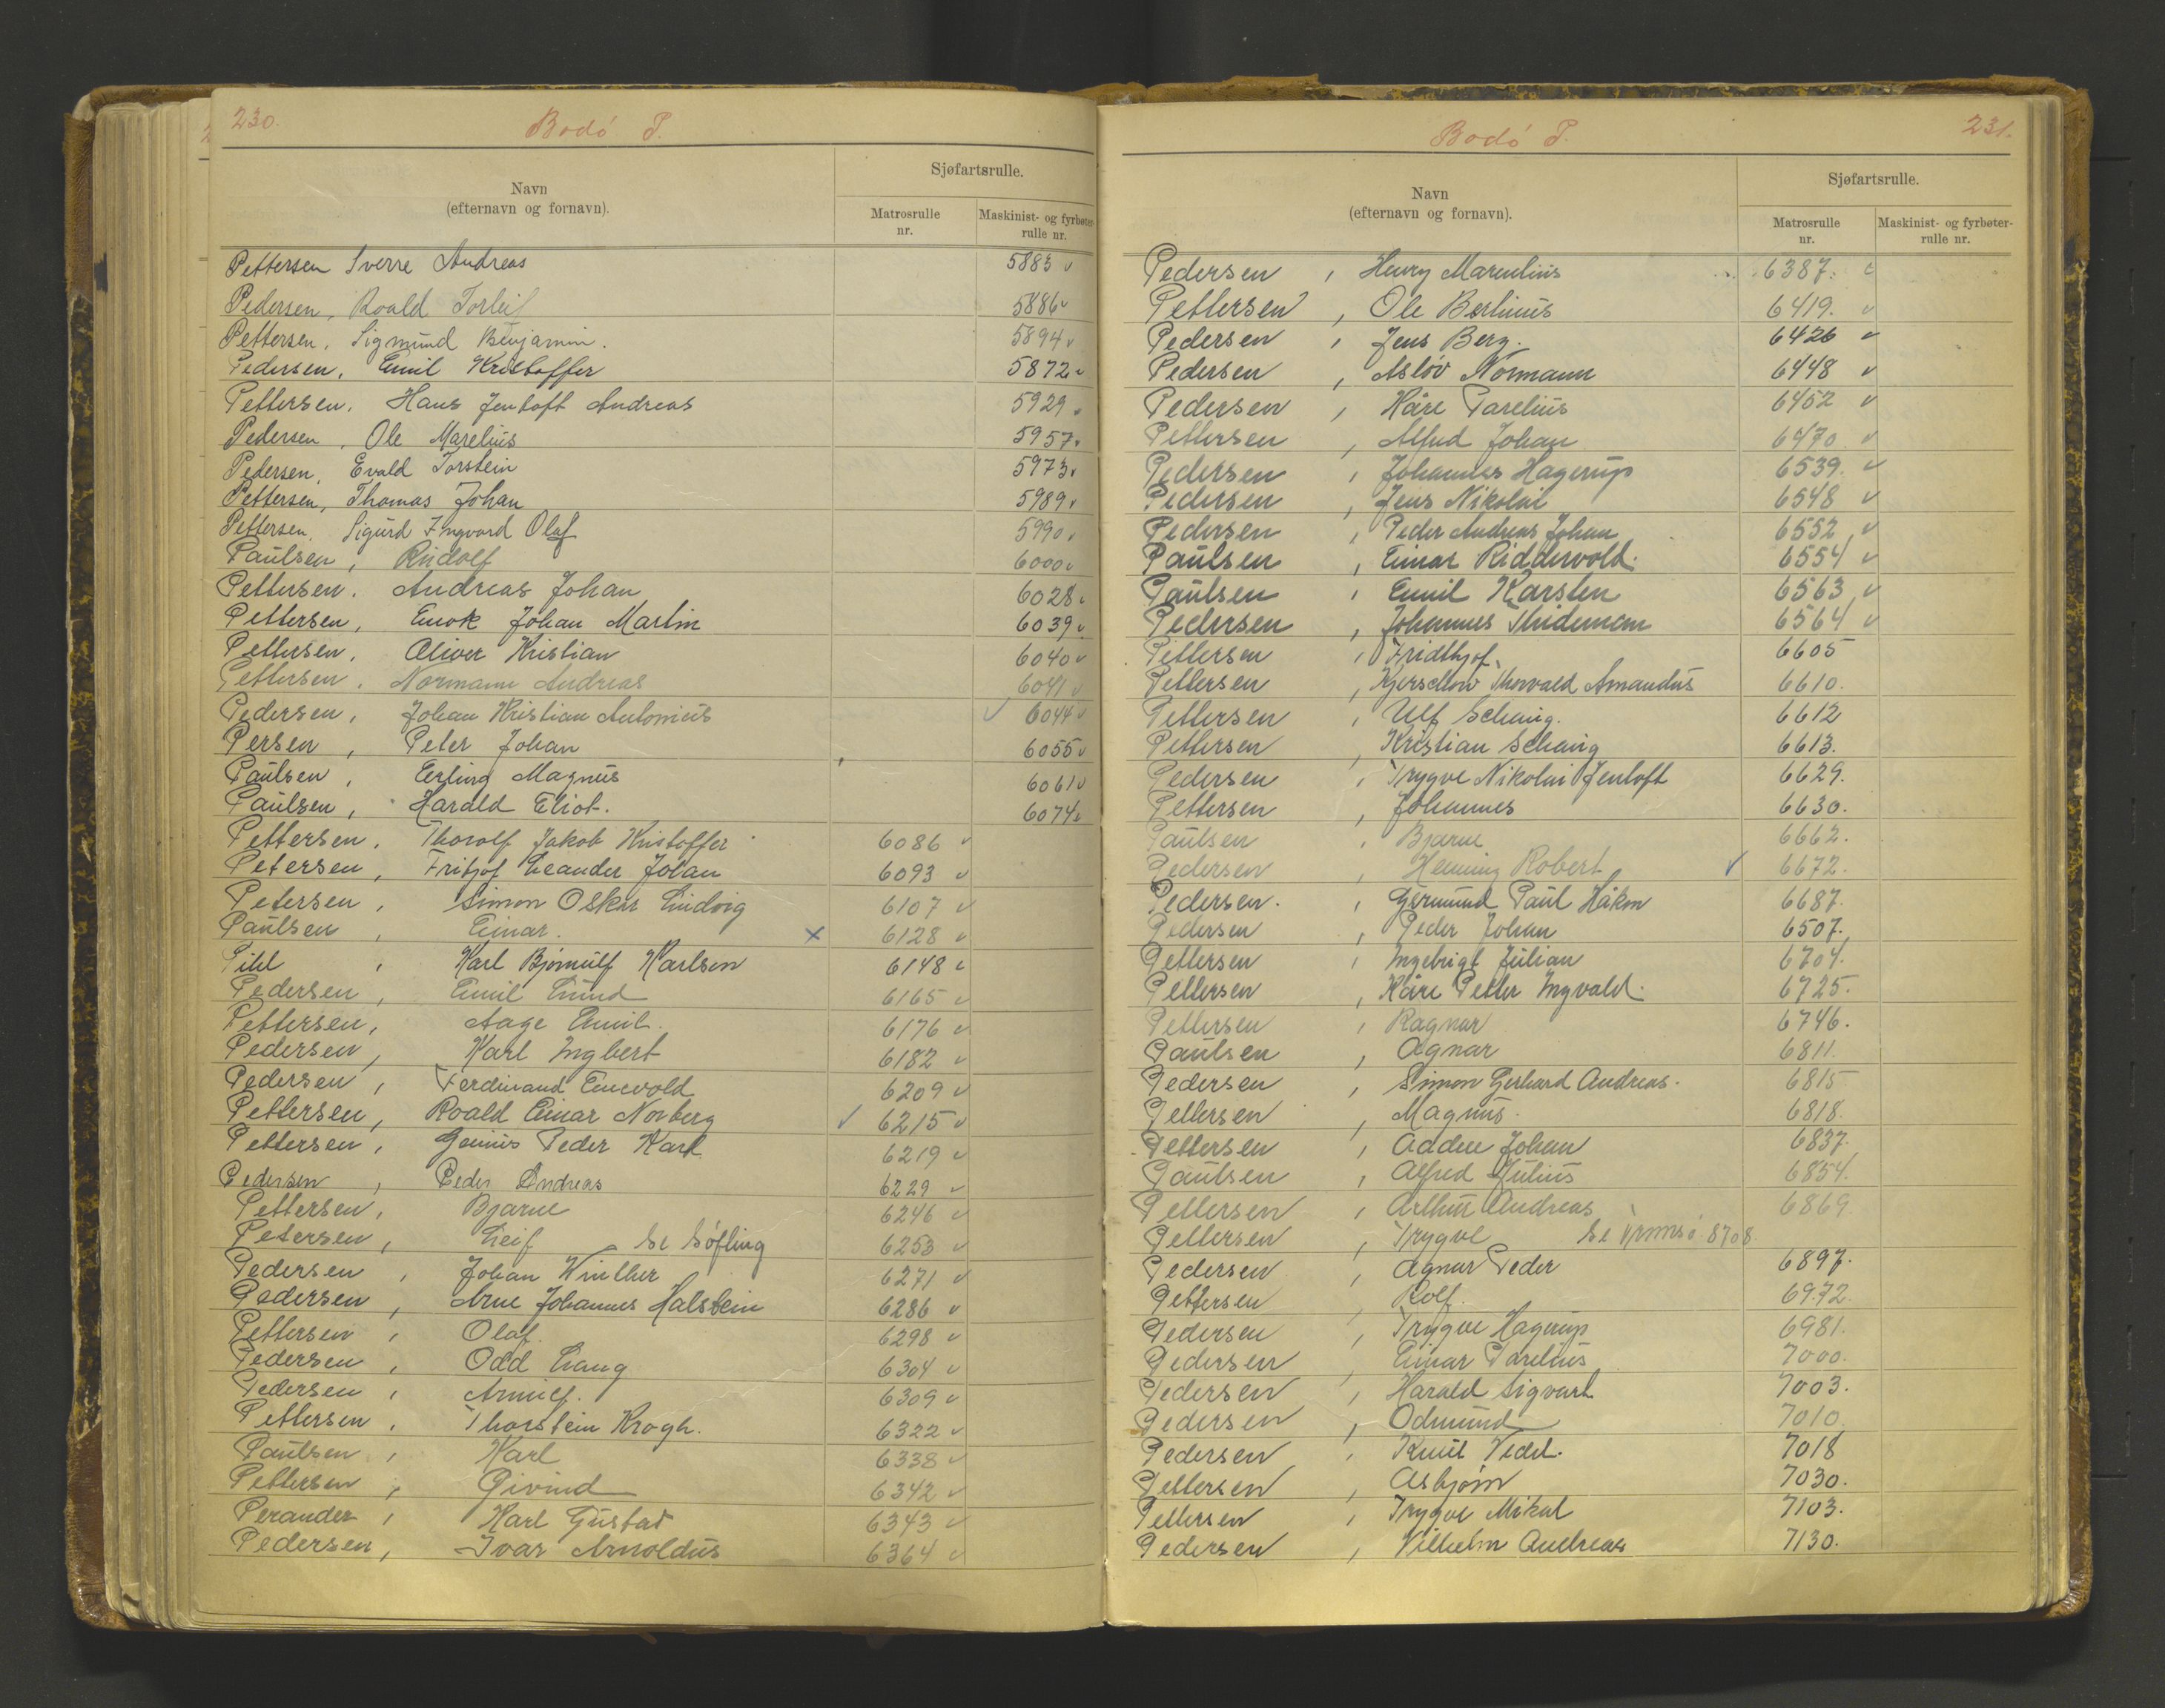 230.
Bodó P.
Navn
(efternavn og fornavn).
Sjøfartsrulle.
Matrosrulle
nr.
Maskinist- og fyrbøter-
rulle nr.
Pettersen Sverre Andreas 5883 v
Pedersen, Roald Torleif 5886 v
Pettersen, Sigmund Benjamin. 5894 v
Pedersen, Emil Kristoffer 5872 v
Pettersen, Hans Jentoft Andreas 5929 v
Pedersen, Ole Marelius 5957 v
Pedersen, Evald Torstein 5973 v
Pettersen, Thomas Johan 5989 v
Pettersen, Sigurd Ingvard Olaf 5990 v
Paulsen, Rudolf 6000 v
Pettersen, Andreas Johan 6028 v
Pettersen, Enok Johan Martin 6039 v
Pettersen, Oliver Kristian 6040 v
Pettersen, Normann Andreas 6041 v
Pedersen, Johan Kristian Antonius v 6044 v
Persen, Peter Johan 6055 v
Paulsen, Erling Magnus 6061 v
Paulsen, Harald Eliot. 6074 v
Pettersen, Thorolf Jakob Kristoffer 6086 v
Petersen, Fritjof Leander Johan 6093 v
Petersen, Simon Oskar Ludvig 6107 v
Paulsen, Einar. x 6128 v
Pihl, Karl Bjornulf Karlsen 6148 v
Pedersen, Emil Lund 6165 v
Pettersen, Aage Emil. 6176 v
Pedersen, Karl Ingbert 6182 v
Pedersen, Ferdinand Enevold 6209 v
Pettersen, Roald Einar Norberg v 6215 v
Pettersen, Peder Karl 6219 v
Pedersen, Peder Andreas 6229 v
Pettersen, Bjarne 6246 v
Petersen, Leif Se Søfting 6253 v
Pedersen, Johan Winther 6271 v
Pedersen, Arne Johannes Halstein 6286 v
Pettersen, Olaf. 6298 v
Pedersen, Odd Lang 6304 v
Pedersen, Arnulf. 6309 v
Pettersen, Thorstein Krogh. 6322 v
Paulsen, Karl 6338 v
Pettersen, Øivind 6342 v
Perander, Karl Gustav 6343 v
Pedersen, Ivar Arnoldus 6364 v
231.
Bodó P.
Navn
(efternavn og fornavn).
Sjøfartsrulle.
Matrosrulle
nr.
Maskinist- og fyrbøter-
rulle nr.
Pedersen, Henry 6387. v
Pettersen, Ole Bertinus 6419. v
Pedersen, Jens Berg. 6426 v
Pedersen, Asløv Normann 6448 v
Pedersen, Kåre Parelius 6452 v
Pettersen, Alfred Johan 6470 v
Pedersen, Johannes Hagerup 6539. v
Pedersen, Jens Nikolai 6548 v
Pedersen, Peder Andreas Johan 6552 v
Paulsen, Einar Riddervold. 6554 v
Paulsen, Emil Karsten 6563 v
Pedersen, Johannes Thidemann 6564 v
Pettersen, Fridthjof. 6605
Pettersen, Kjerschow Thorvald Amandus 6610.
Pettersen, Ulf Scheing. 6612
Pettersen, Kristian Scheing 6613.
Pedersen, Trygve Nikolai Jentoft 6629.
Pettersen, Johannes 6630.
Paulsen, Bjarne 6662.
Pedersen, Henning Robert v 6672.
Pedersen, Germund Paul Håkon 6687.
Pedersen, Peder Johan 6507.
Pettersen, Ingebrigt Julian 6704.
Pettersen, Kåre Petter Ingvald. 6725.
Pettersen, Ragnar 6746.
Paulsen, Agnar 6811.
Pedersen, Simon Gerhard Andreas. 6815
Pettersen, Magnus. 6818.
Pettersen, Johan 6837.
Paulsen, Alfred Julius 6854.
Pettersen, Arthur Andreas 6869
Pettersen, Trygve Se Tromsø 8708
Pedersen, Agnar Peder 6897.
Pettersen, Rolf. 6972.
Pedersen, Trygve Hagerup 6981.
Pedersen, Einar Parelius 7000.
Pedersen, Harald Sigvart 7003.
Pedersen, Odmund 7010
Pedersen, Knut Vedel. 7018
Pettersen, Asbjørn 7030.
Pettersen, Trygve Mikal 7103.
Pedersen, Vilhelm Andreas 7130.